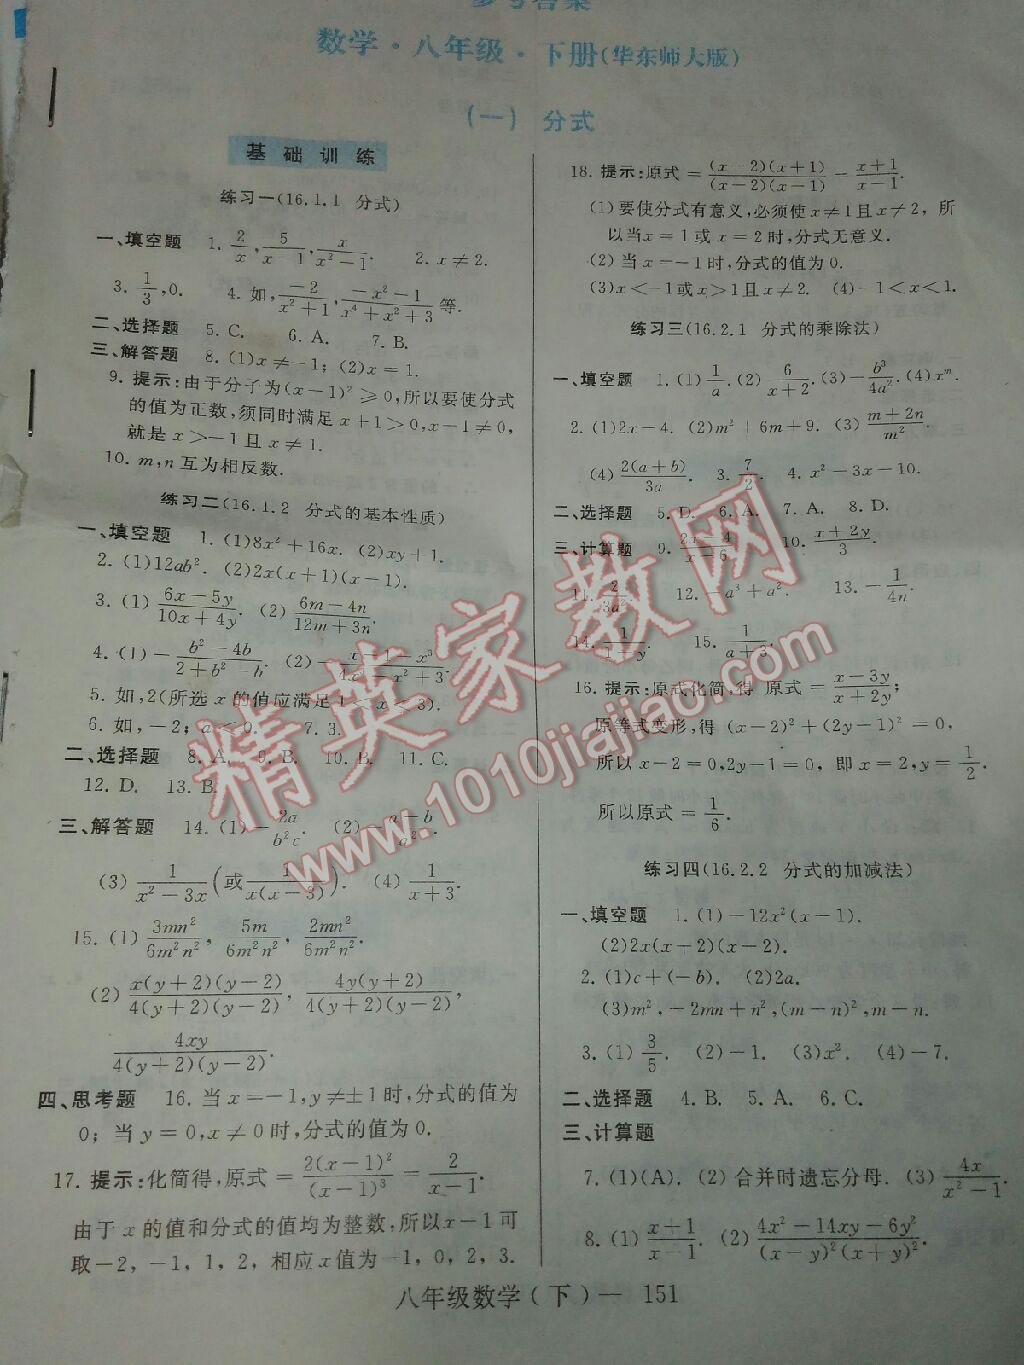 参考答案
数学·八年级·下册(华东师大版)
(一) 分式
基础训练
练习一(16.1.1 分式)
一、填空题 1. 2/x, 5/(x-1), x/(x²-1). 2. x≠2.
3. 1/3, 0. 4. 如, -2/(x²+1), (-x²-1)/(x⁴+x²+3)等.
二、选择题 5. C. 6. A. 7. B.
三、解答题 8. (1)x≠-1; (2)x=1.
9. 提示:由于分子为(x-1)²≥0,所以要使分式
的值为正数,须同时满足 x+1>0,x-1≠0,
就是 x>-1 且 x≠1.
10. m,n互为相反数.
练习二(16.1.2 分式的基本性质)
一、填空题 1. (1)8x²+16x. (2)xy+1.
2. (1)12ab². (2)2x(x+1)(x-1).
3. (1) (6x-5y)/(10x+4y). (2) (6m-4n)/(12m+3n).
4. (1)- (b²-4b)/(2+b²-b). (2)-
5. 如,2(所选 x 的值应满足 1<x<3).
6. 如,-2; a<0. 7. 3.
二、选择题 8. A. 9. B. 10. B. 11. C.
12. D. 13. B.
三、解答题 14. (1)- 2a/(b²c). (2)
(3) 1/(x²-3x) (或 1/(x(x-3))). (4) 1/(x+3).
15. (1) 3mn²/(6m²n²), 5m/(6m²n²), 2mn²/(6m²n²).
(2) x(y+2)(y-2)/(4(y+2)(y-2)), 4y(y+2)/(4(y+2)(y-2)),
4xy/(4(y+2)(y-2)).
四、思考题 16. 当 x=-1,y≠±1时,分式的值为
0; 当 y=0,x≠0时,分式的值为0.
17. 提示:化简得,原式= 2(x-1)²/(x-1)³ = 2/(x-1).
由于 x 的值和分式的值均为整数,所以x-1可
取-2, -1, 1, 2, 相应x值为-1, 0, 2, 3.
18. 提示:原式= (x-2)(x+1)/((x-2)(x-1)) = (x+1)/(x-1).
(1)要使分式有意义,必须使x≠1且x≠2, 所
以当x=1或x=2时,分式无意义.
(2) 当x=-1时,分式的值为0.
(3)x<-1或x>1且x≠2. (4)-1<x<1.
练习三(16.2.1 分式的乘除法)
一、填空题 1. (1) 1/a. (2) 6/(x+2). (3)- b³/(4a²). (4)xᵐ.
2. (1)2x-4. (2)m²+6m+9. (3) (m+2n)/m².
(4) 2(a+b)/(3a). 3. 7/2. 4. x²-3x-10.
二、选择题 5. D. 6. A. 7. A. 8. D.
三、计算题 9. (2x-4)/(x-6). 10. (x+2y)/3.
11. 2/(3a²). 12. -a³+a². 13. - 1/(4n).
14. 15. 1/(a+3).
16. 提示:原式化简,得 原式= (x-3y)/(x+2y);
原等式变形,得 (x-2)²+(2y-1)²=0,
所以 x-2=0,2y-1=0, 即 x=2,y= 1/2.
所以原式= 1/6.
练习四(16.2.2 分式的加减法)
一、填空题 1. (1)-12x²(x-1).
(2)2x(x-2)(x-2).
2. (1)c+(-b). (2)2a.
(3)m²,-2mn+n²,(m-n)²,m-n.
3. (1) 3/5. (2)-1. (3)x². (4)-7.
二、选择题 4. B. 5. A. 6. C.
三、计算题
7. (1)(A). (2) 合并时遗忘分母. (3) 4x/(x²-1).
8. (1) (x+1)/(x-1). (2) (4x²-14xy-6y²)/((x-y)²(x+y)²).
八年级数学(下)— 151
精英家教网
www.1010jiajiao.com